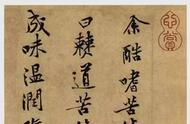 余酷嗜苦
曰僰道苦
成味温潤